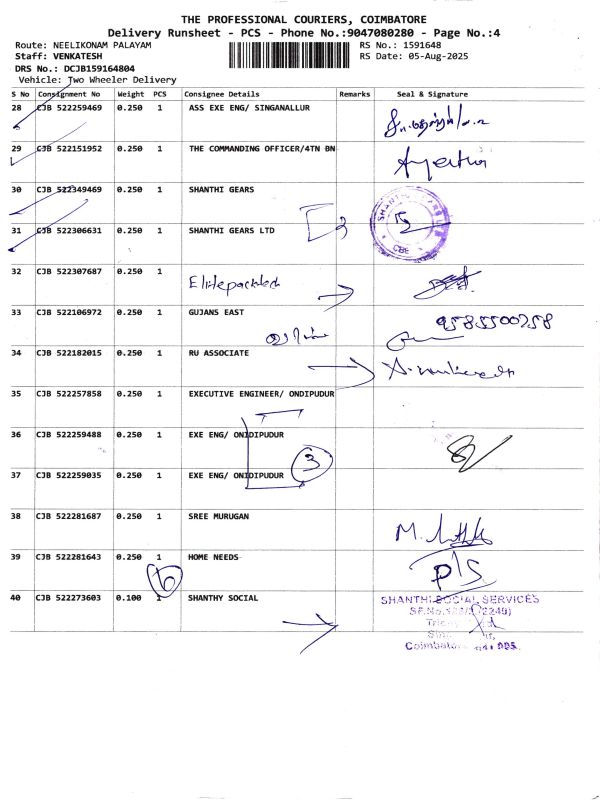 THE PROFESSIONAL COURIERS, COIMBATORE
Delivery Runsheet - PCS - Phone No.:9047080280 - Page No.:4
Route: NEELIKONAM PALAYAM RS No.: 1591648
Staff: VENKATESH RS Date: 05-Aug-2025
DRS No.: DCJB159164804
Vehicle: Two Wheeler Delivery
S No Consignment No Weight PCS Consignee Details Remarks Seal & Signature
28 CJB 522259469 0.250 1 ASS EXE ENG/ SINGANALLUR
29 CJB 522151952 0.250 1 THE COMMANDING OFFICER/4TN BN
30 CJB 522349469 0.250 1 SHANTHI GEARS
31 CJB 522306631 0.250 1 SHANTHI GEARS LTD 2
32 CJB 522307687 0.250 1
33 CJB 522106972 0.250 1 GUJANS EAST 9585500258
34 CJB 522182015 0.250 1 RU ASSOCIATE
35 CJB 522257858 0.250 1 EXECUTIVE ENGINEER/ ONDIPUDUR
36 CJB 522259488 0.250 1 EXE ENG/ ONDIPUDUR
3
37 CJB 522259035 0.250 1 EXE ENG/ ONDIPUDUR
38 CJB 522281687 0.250 1 SREE MURUGAN
39 CJB 522281643 0.250 1 HOME NEEDS
40 CJB 522273603 0.100 1 SHANTHY SOCIAL SHANTHI SOCIAL SERVICES